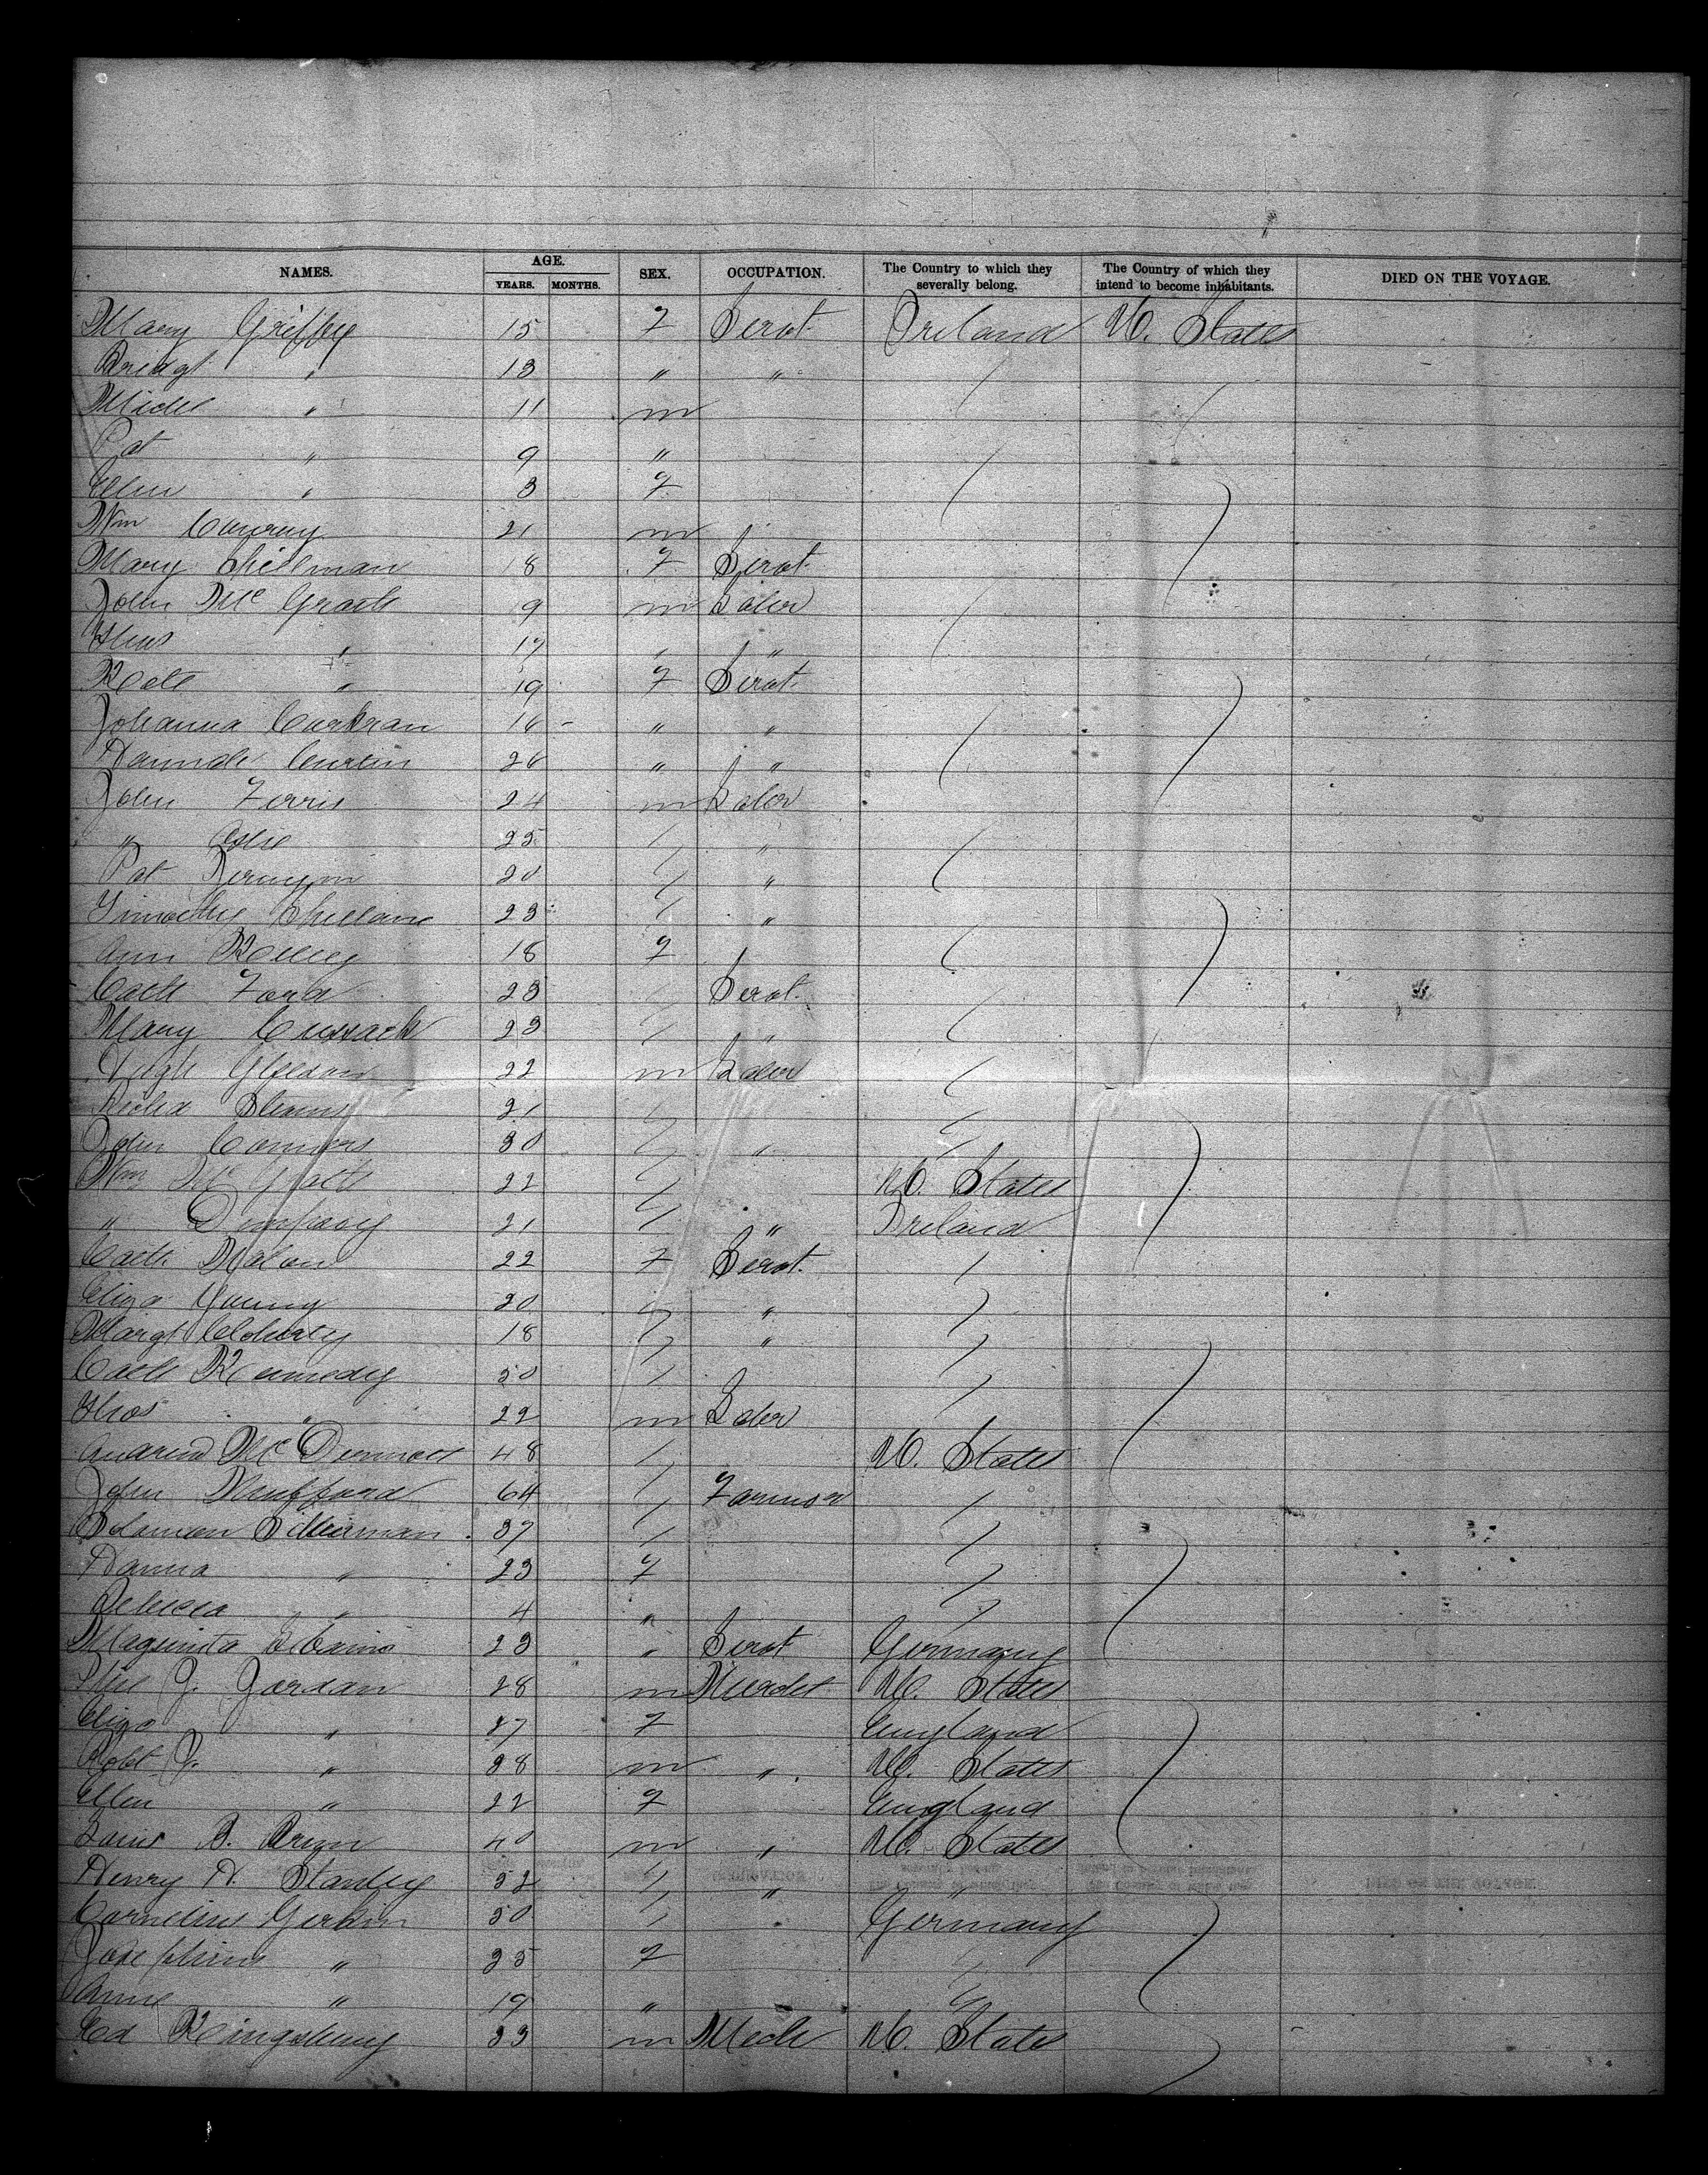 NAMES. AGE. YEARS. MONTHS. SEX. OCCUPATION. The Country to which they severally belong. The Country of which they intend to become inhabitants. DIED ON THE VOYAGE.
Mary Griffey 15 F Servt. Ireland U. States
Bridgt " 13 " "
Michl " 11 m
Pat " 9 "
Ellen " 3 F
Wm 21 m
Mary 18 F Servt.
John McGrath 19 m Labr
Thos " 17 " "
Kate " 19 F Servt.
Johanna Corkran 16 " "
Hannah Curtin 26 " "
John Ferris 24 m Labr
" 25 "
Pat 20 "
Timothy 23 "
Ann Kelley 18 F
Cath Ford 23 Servt.
Mary Cussack 23 "
Hugh 22 m Labr
Richd 21
John Connors 30 "
Wm Mc 22 U. States
" Dempsey 21 " Ireland
Cath 22 F Servt.
Eliza Young 20 "
Margt 18 "
Cath Kennedy 50
Thos " 22 m Labr
Andrew McDermott 48 U. States
John 64 Farmer
Solomon Silberman 37
Hanna " 23 F
Rebecca " 4 "
23 " Servt Germany
J. Jordan 28 m Mercht U. States
Eliza " 27 F England
Robt J. " 28 m " U. States
Ellen " 22 F England
Louis B. 40 m " U. States
Henry H. Stanley 52 " "
Cornelius Gerken 50 " Germany
Josephine " 25 F
Anna " 19 "
Ed Kingsbury 33 m Mech U. States